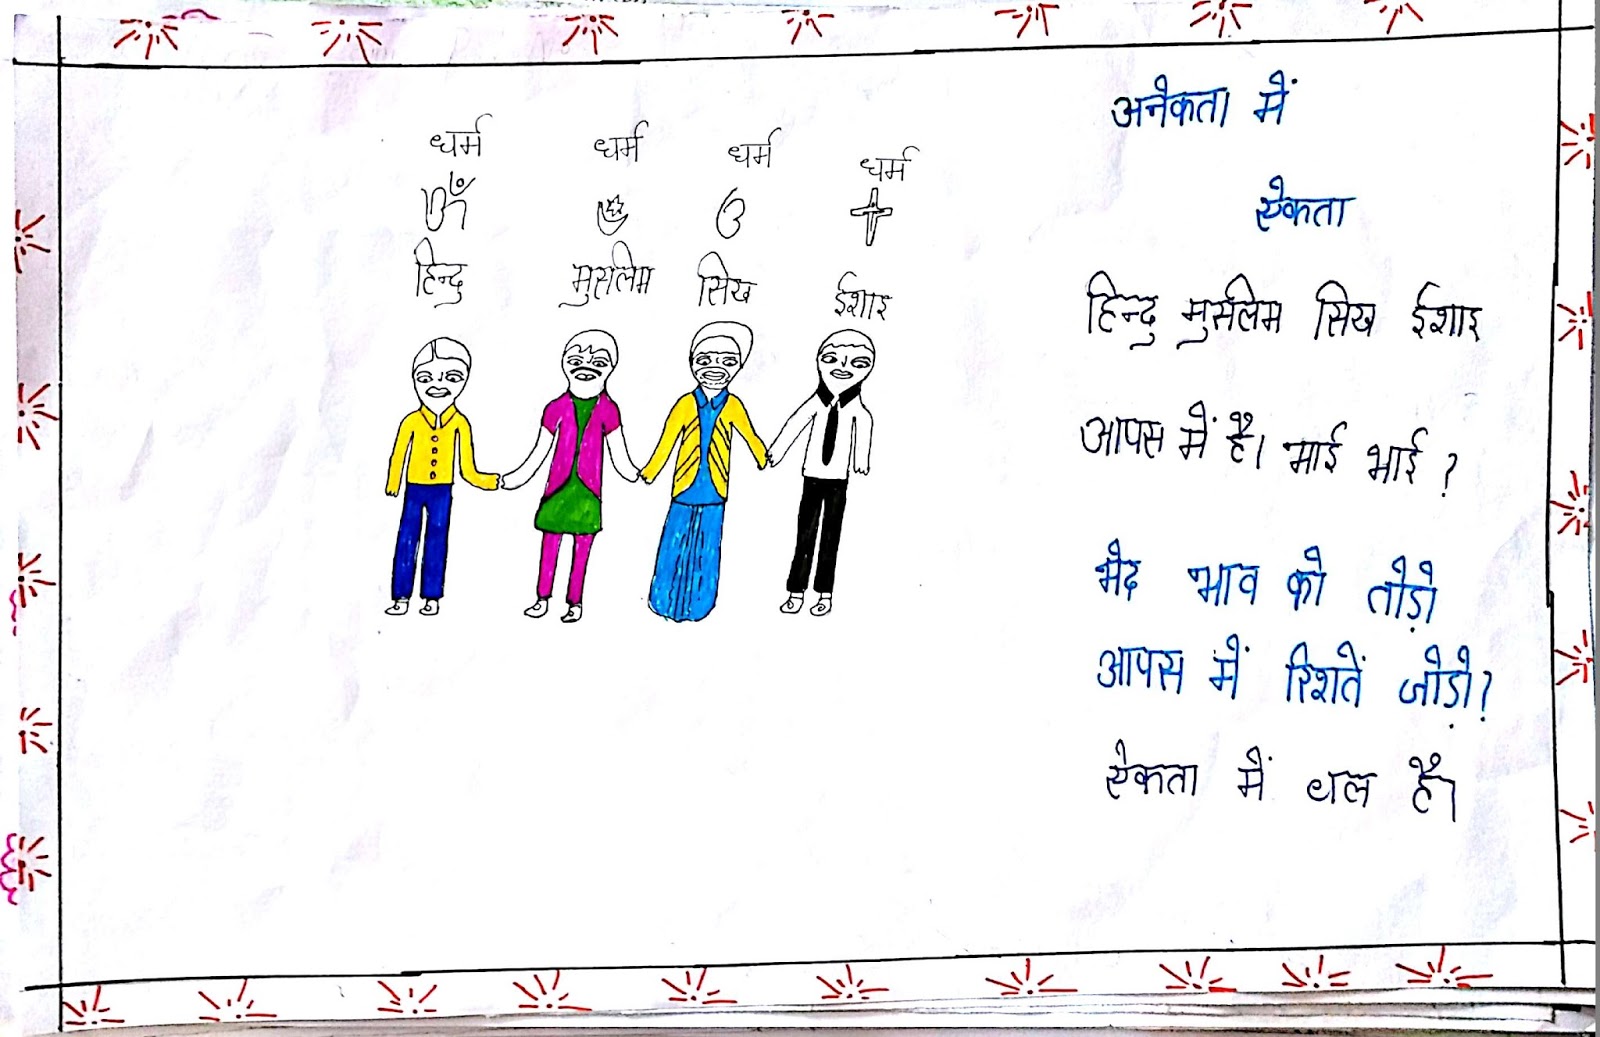 धर्म धर्म धर्म धर्म
ॐ
हिन्दु मुसलिम सिख ईशाइ
अनेकता में
ऐकता
हिन्दु मुसलिम सिख ईशाइ
आपस में है। भाई भाई ?
भेद भाव को तोड़ो
आपस में रिशतें जोड़ो ?
ऐकता में बल है।